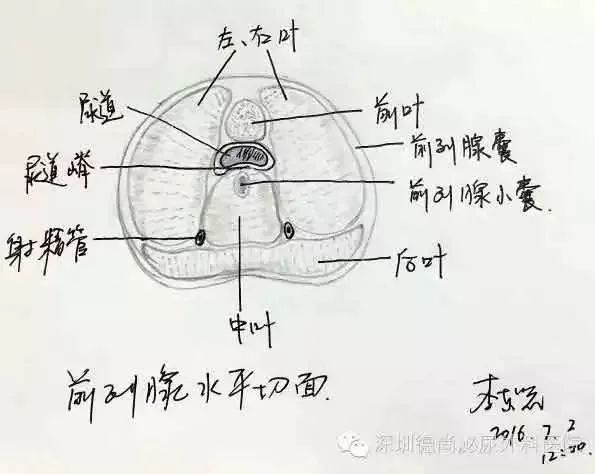 左、右叶
尿道
前叶
尿道嵴
前列腺囊
前列腺小囊.
射精管
后叶
中叶
前列腺水平切面.
2016.7.2
12:20.
深圳德尚泌尿外科医院